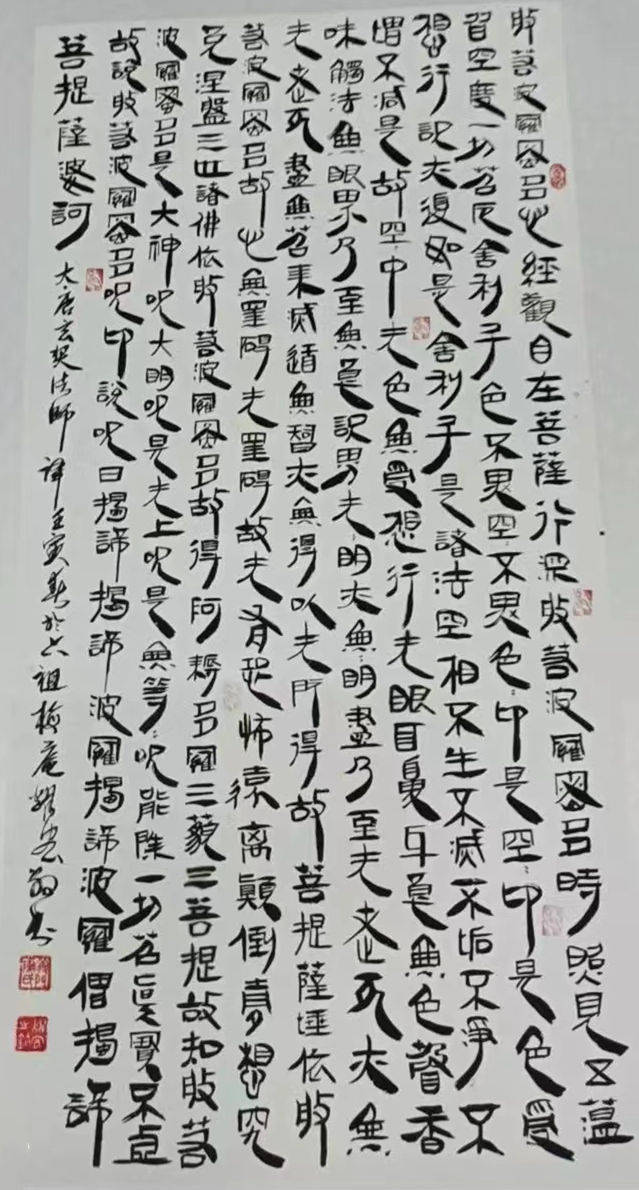 般若波羅蜜多心經觀自在菩薩行深般若波羅蜜多時照見五蘊
皆空度一切苦厄舍利子色不異空:不異色:即是空:即是色受
想行識亦復如是舍利子是諸法空相不生不滅不垢不淨不
增不減是故空中无色無受想行无眼耳鼻舌意無色聲香
味觸法無眼界乃至無意識界无:明亦無:明盡乃至无老死亦無
无老死盡無苦集滅道無智亦無得以无所得故菩提薩埵依般
若波羅蜜多故心無罣礙无罣礙故无有恐怖遠離顛倒夢想究
竟涅盤三世諸佛依般若波羅蜜多故得阿耨多羅三藐三菩提故知般若
波羅蜜多是大神呪大明呪是无上呪是無等:呪能除一切苦真實不虛
故說般若波羅蜜多呪即說呪曰揭諦揭諦波羅揭諦波羅僧揭諦
菩提薩婆訶
大唐玄奘法師譯壬寅於六祖梅庵書